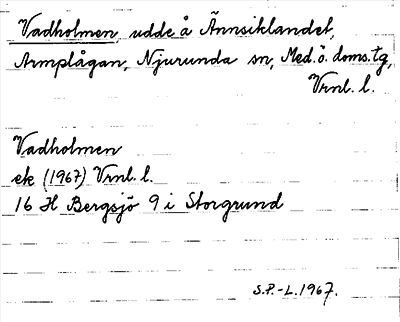 Vadholmen, udde å Ännsiklandet,
Armplågan, Njurunda sn, Med. ö. doms. tg,
Vrnl. l.
Vadholmen
ek (1967) Vrnl. l.
16 H Bergsjö 9 i Storgrund
S.P.-L. 1967.